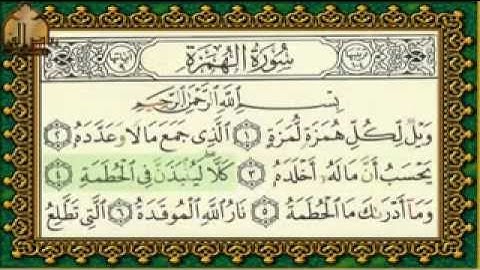 سُورَةُ الْهُمَزَةِ
بِسْمِ اللَّهِ الرَّحْمَٰنِ الرَّحِيمِ
وَيْلٌ لِّكُلِّ هُمَزَةٍ لُّمَزَةٍ ١ الَّذِي جَمَعَ مَالًا وَعَدَّدَهُ ٢
يَحْسَبُ أَنَّ مَالَهُ أَخْلَدَهُ ٣ كَلَّا لَيُنبَذَنَّ فِي الْحُطَمَةِ ٤
وَمَا أَدْرَاكَ مَا الْحُطَمَةُ ٥ نَارُ اللَّهِ الْمُوقَدَةُ ٦ الَّتِي تَطَّلِعُ